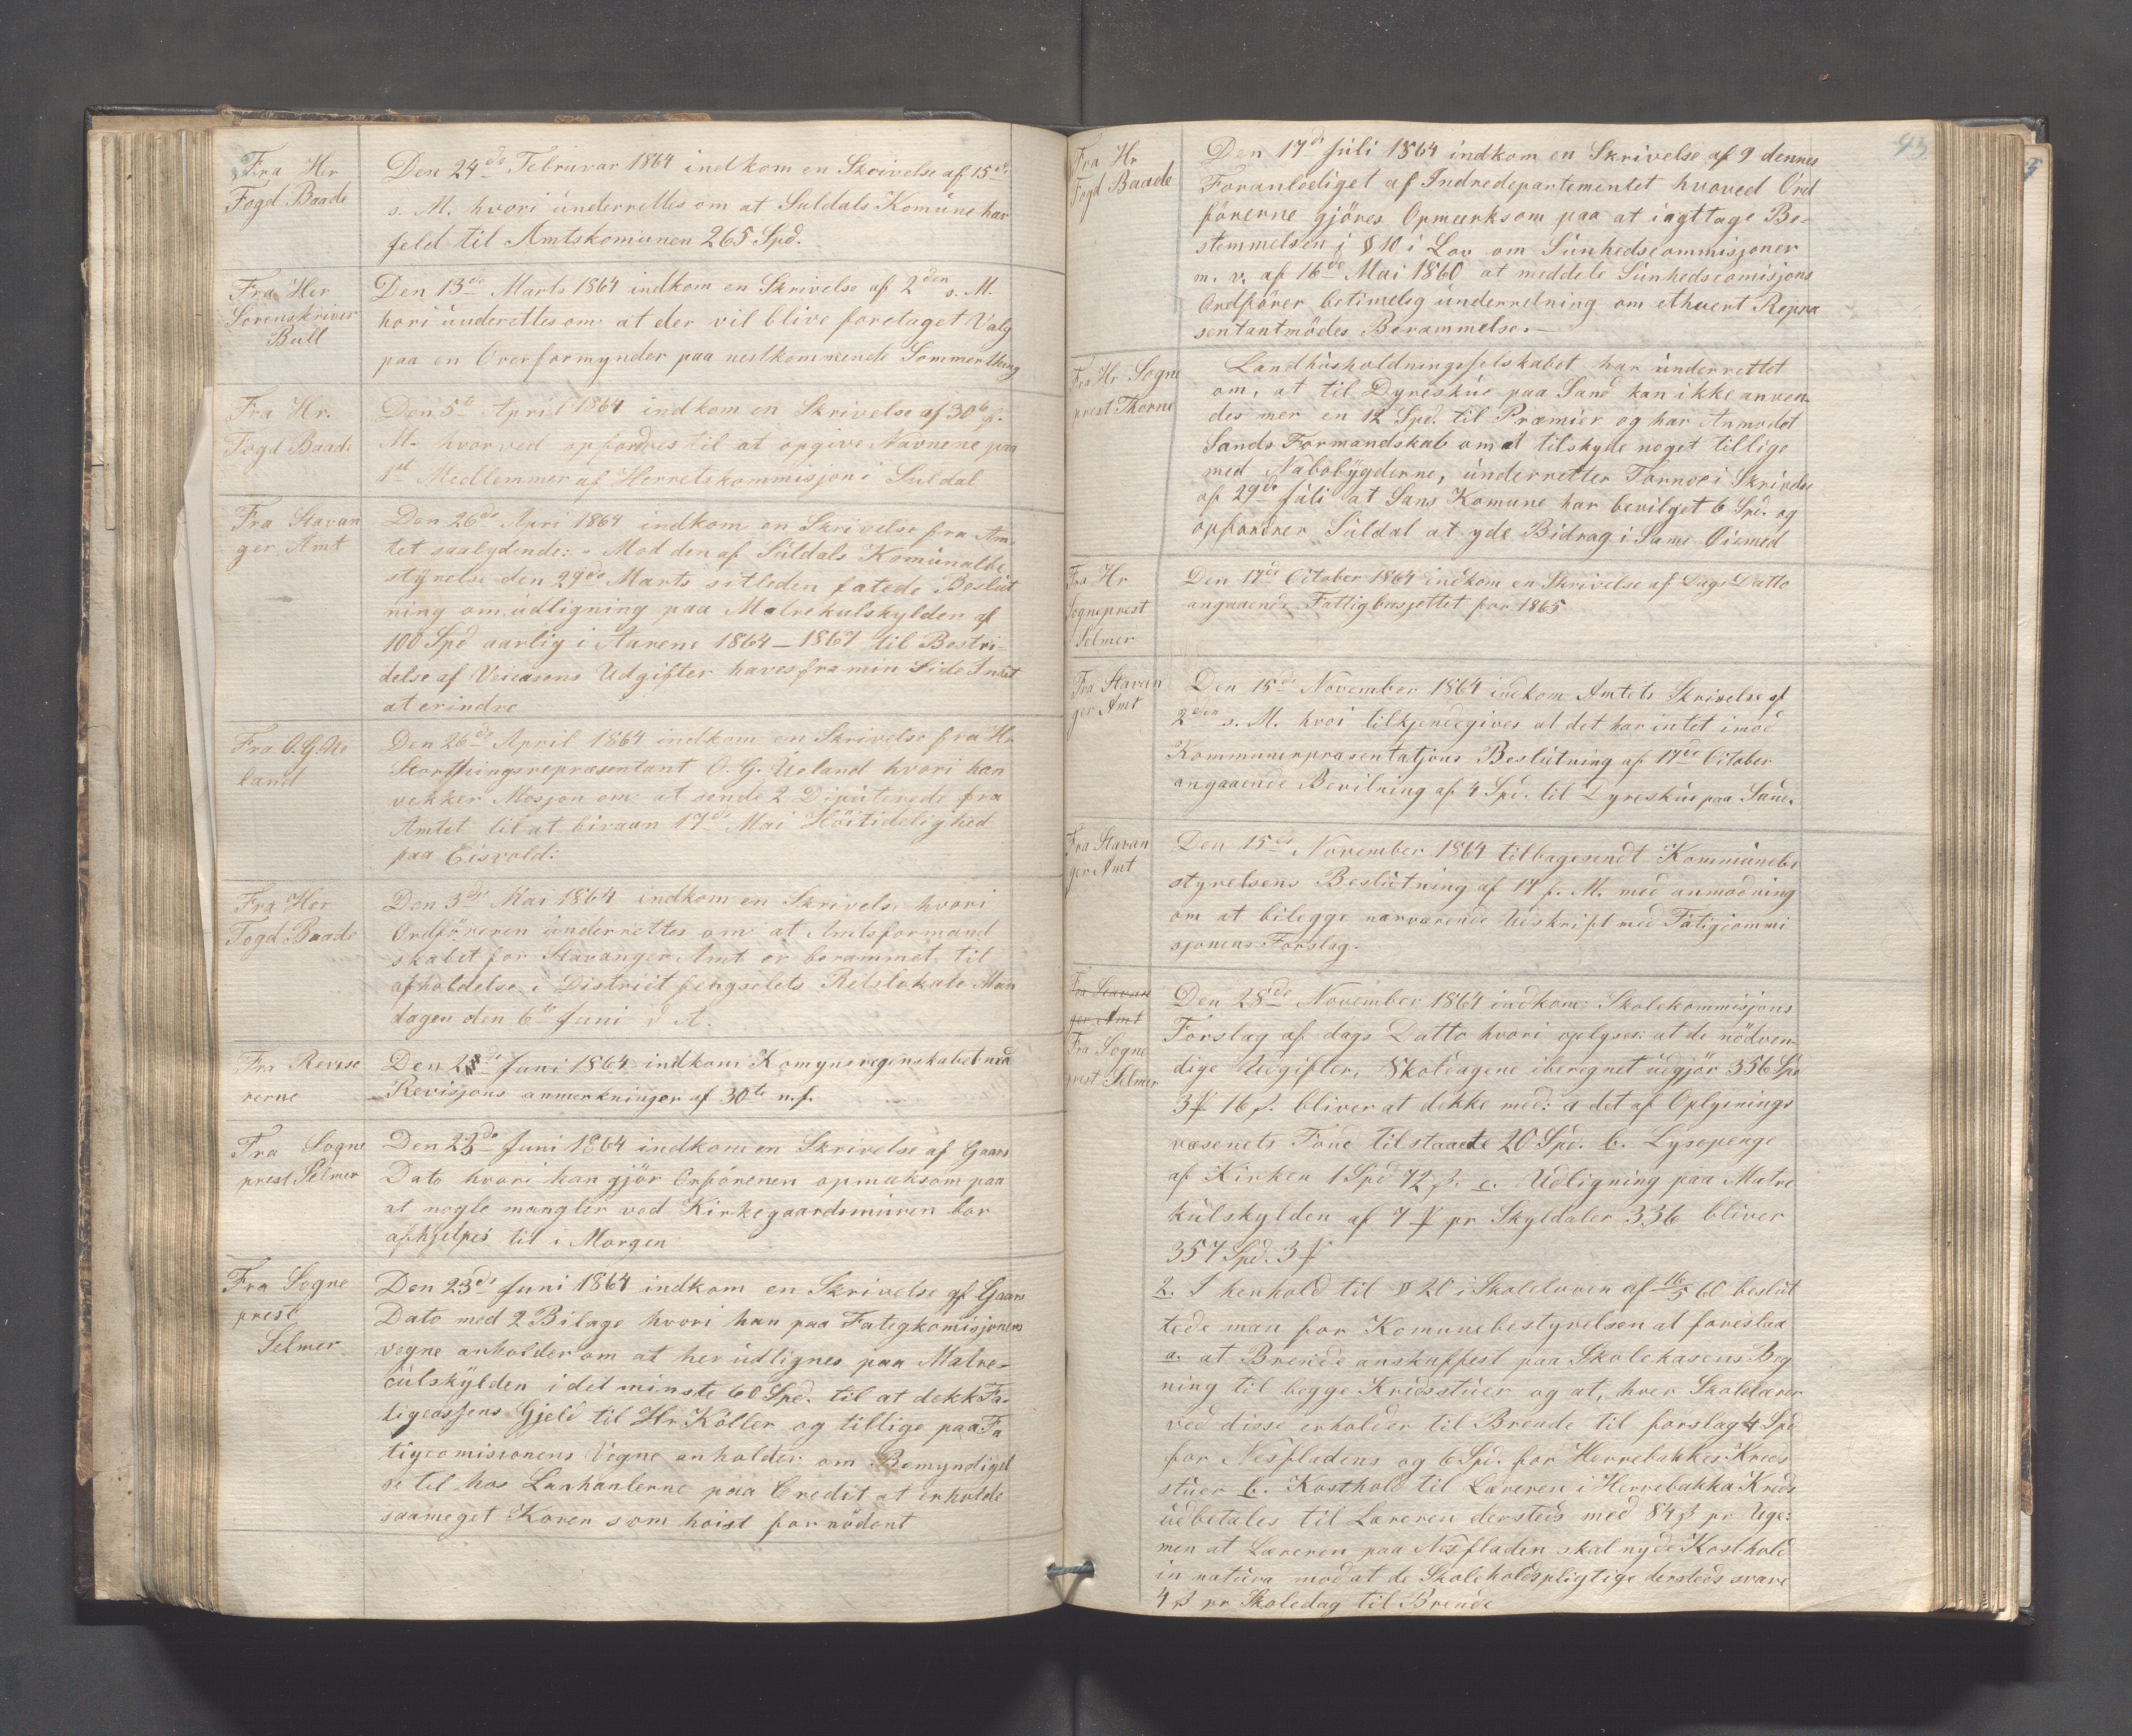 Fra Hr
Fogd Baade
Den 24de Februar 1864 indkom en Skrivelse af 15de
s. M. hvori underrettes om at Suldals Komune har
feld til Amtskomunen 265 Spd.
Fra Her
Sorenskriver
Bull
Den 13de Marts 1864 indkom en Skrivelse af 2den s. M.
hori underettes om at der vil blive foretaget Valg
paa en Overformynder paa nestkommende Sommerthing
Fra Hr.
Fogd Baade
Den 5te April 1864 indkom en Skrivelse af 30te f.
M. hvorved opfordres til at opgive Navnene paa
1st Medlemmer af Herretskommisjon i Suldal
Fra Stavan
ger Amt
Den 26de Apri 1864 indkom en Skrivelse fra Am-
tet saalydende: Mod den af Suldals Komunalbe
styrelse den 29de Marts sitleden fatede Beslut
ning om udligning paa Matrekulskylden af
100 Spd aarlig i Aarene 1864–1867 til Bestri-
delse af Veicasens Udgifter haves fra min Side Intet
at erindre
Fra O. G. Ue
land
Den 26de April 1864 indkom en Skrivelse fra Hr
Storthingsrepræsentant O. G. Ueland hvori han
vekker Mosjon om at sende 2 Diputerede fra
Amtet til at bivaan 17de Mai Höitidelighed
paa Eisvold:
Fra Her
Fogd Baade
Den 3de Mai 1864 indkom en Skrivelse hvori
Ordföreren underrettes om at Amtsformand
skabet for Stavanger Amt er berammet til
afholdelse i Distriit fengselets Retslokale Man
dagen den 6te Juni d A.
Fra Reviso
rerne
Den 2de Juni 1864 indkom Komynsregenskabet med
Revisjons anmerkninger af 30te n.f.
Fra Sogne
prest Selmer
Den 23de Juni 1864 indkom en Skrivelse af Gaars
Dato hvori han gjör Orförenen opmerksom paa
at nogle mangler ved Kirkegaardsmuren bør
afhjelpes til i Morgen
Fra Sogne
prest
Selmer
Den 23de Juni 1864 indkom en Skrivelse af Gaars
Dato med 2 Bilage hvori han paa Fatigkomisjonens
vegne anholder om at her udlignes paa Matre-
culskylden i det minste 60 Spd. til at dekk Fa-
tigcassens Gjeld til Hr Köller og tillige paa Fa
tigcomisionens Vegne anholder om Bemyndigel
se til hos Lanhanlerne paa Credit at erholde
saameget Koren som hoist fornödent
93
Fra Hr
Fogd Baade
Den 17de Juli 1864 indkom en Skrivelse af 9 dennes
Foranlediget af Indredepartementet hvoved Ord
förerne gjöres Opmærksom paa at iagttage Be-
stemmelsen i § 10 i Lov om Sunhedscommisjoner
m. v. af 16de Mai 1860 at meddele Sunhedscomisjons
Ordförer betimelig underretning om ethvert Repra
sentantmödes Berammelse.–
Fra Hr Sogne
prest Thorne
Landhusholdningsselskabet har underrettet
om, at til Dyreskue paa Sand kan ikke anven
des mer en 12 Spd. til Præmier og har Anmodet
Sands Formandskab om at tilskyde noget tillige
med Nabobygderne, underretter Tornoe i Skrivelse
af 29de Juli at Sans Komune har bevilget 6 Spd. og
opfordrer Suldal at yde Bidrag i Same Öiemed
Fra Hr
Sogneprest
Selmer
Den 17de October 1864 indkom en Skrivelse af Dags Datto
angaaende Fattigbusjettet for 1865
Fra Stavan
ger Amt
Den 15de November 1864 indkom Amtets Skrivelse af
2den s. M. hvoi tilkjendegives at det har intet imod
Kommunerpræsentatjons Beslutning af 17de October
angaaende Bevilning af 4 Spd. til Dyreskue paa Sane.
Fra Stavan
ger Amt
Den 15de November 1864 tilbagesendt Kommunebe
styrelsens Beslutning af 17 f. M. med anmodning
om at bilegge nærværende Udskrift med Fatigcommi
sjonens Forslag.
Fra Stavan
ger Amt
Fra Sogne
prest Selmer
Den 28de November 1864 indkom Skolekommisjons
Forslag af dags Datto hvori oplyses at de nödven-
dige Udgifter, Skoldagene iberegnet udgjör 356 Spd
3 ℔ 16 s. bliver at dekke med: a det af Oplysnings
væsenets Fond tilstaaete 20 Spd. b. Lysepenge
af Kirken 1 Spd 72 s. c. Udligning paa Matre
kulskylden af 7 ℔ pr Skyldaler 336 bliver
357 Spd. 3 ℔
2. I henhold til § 20 i Skoleloven af 16/5 60 beslut
tede man for Komunebestyrelsen at foreslaa
a. at Brende anskaffest paa Skolekasens Beg
ning til begge Kredsstuer og at, hver Skolelærer
ved disse erholder til Brende til forslag 4 Spd
for Nesfladens og 6 Spd. for Herrebakkes Kreds
stuer b. Kosthold til Læreren i Herrebakka Kreds
udbetales til Læreren dersteds med 84 s pr Uge:
men at Læreren paa Nesfladen skal nyde Kosthold
in natura mod at de Skoleholdspligtige dersteds svare
4 s pr Skoledag til Brende